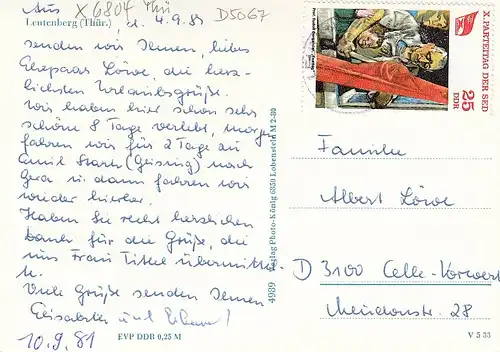 Aus X 6804 Thü D5067
Leutenberg (Thür.), d. 4.9.81
senden wir Ihnen, liebes
Ehepaar Löwe, die herz-
lichsten Urlaubsgrüße.
Wir haben hier schon sehr
schöne 8 Tage verlebt, morgen
fahren wir für 2 Tage zu
(Geising) nach
Gera u. dann fahren wir
wieder hierher.
Haben Sie recht herzlichen
Dank für die Grüße, die
uns Frau Tittel übermittel-
te.
Viele Grüße senden Ihnen
Elisabeth und
10.9.81
EVP DDR 0,25 M
4939 Verlag Photo-König 6850 Lobenstein M 2-80
X. PARTEITAG DER SED
25
DDR
Familie
Albert Löwe
D 3100 Celle-Vorwerk
28
V 5 33